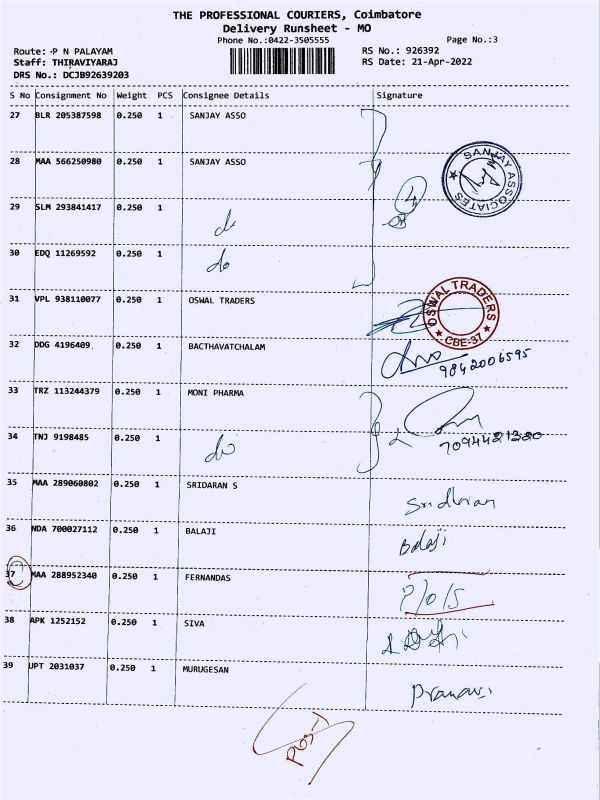 THE PROFESSIONAL COURIERS, Coimbatore
Delivery Runsheet - MO
Phone No.:0422-3505555
Page No.:3
Route: P N PALAYAM
RS No.: 926392
Staff: THIRAVIYARAJ
RS Date: 21-Apr-2022
DRS No.: DCJB92639203
S No Consignment No Weight PCS Consignee Details Signature
27 BLR 205387598 0.250 1 SANJAY ASSO
28 MAA 566250980 0.250 1 SANJAY ASSO
SANJAY ASSOCIATES
29 SLM 293841417 0.250 1 do
30 EDQ 11269592 0.250 1 do
31 VPL 938110077 0.250 1 OSWAL TRADERS
OSWAL TRADERS
CBE-37
32 DDG 4196409 0.250 1 BACTHAVATCHALAM
9842006595
33 TRZ 113244379 0.250 1 MONI PHARMA
34 TNJ 9198485 0.250 1 do
35 MAA 289060802 0.250 1 SRIDARAN S Sridharan
36 NDA 700027112 0.250 1 BALAJI Balaji
37 MAA 288952340 0.250 1 FERNANDAS
38 APK 1252152 0.250 1 SIVA
39 UPT 2031037 0.250 1 MURUGESAN